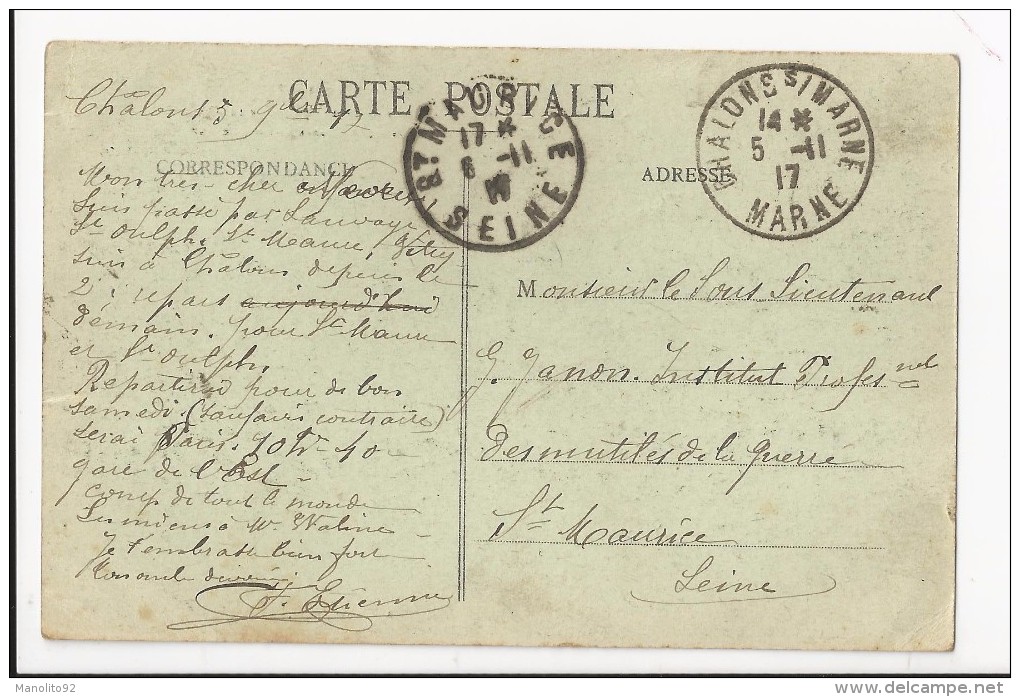 CARTE POSTALE
Châlons 5 9bre 17
CORRESPONDANCE
Mon très-cher
suis passé par Sauvage
St Oulph. St Mesme
suis à Châlons depuis le
2; repars aujourd'hui
demain. pour St Mesme
et St Oulph.
Repartirai pour de bon
samedi. (sauf avis contraire)
serai Paris. 10h-40
gare de l'Est -
comp de tout le monde
Les miens à Mr
Je t'embrasse bien fort
Ton oncle
ST MAURICE
17 *
6 -11
17
SEINE
CHALONS S/MARNE
14 *
5 -11
17
MARNE
ADRESSE
Monsieur le Sous Lieutenant
G. Janon. Institut Profesnel
Des mutilés de la guerre
St Maurice
Seine
Manolito92
delcampe.net